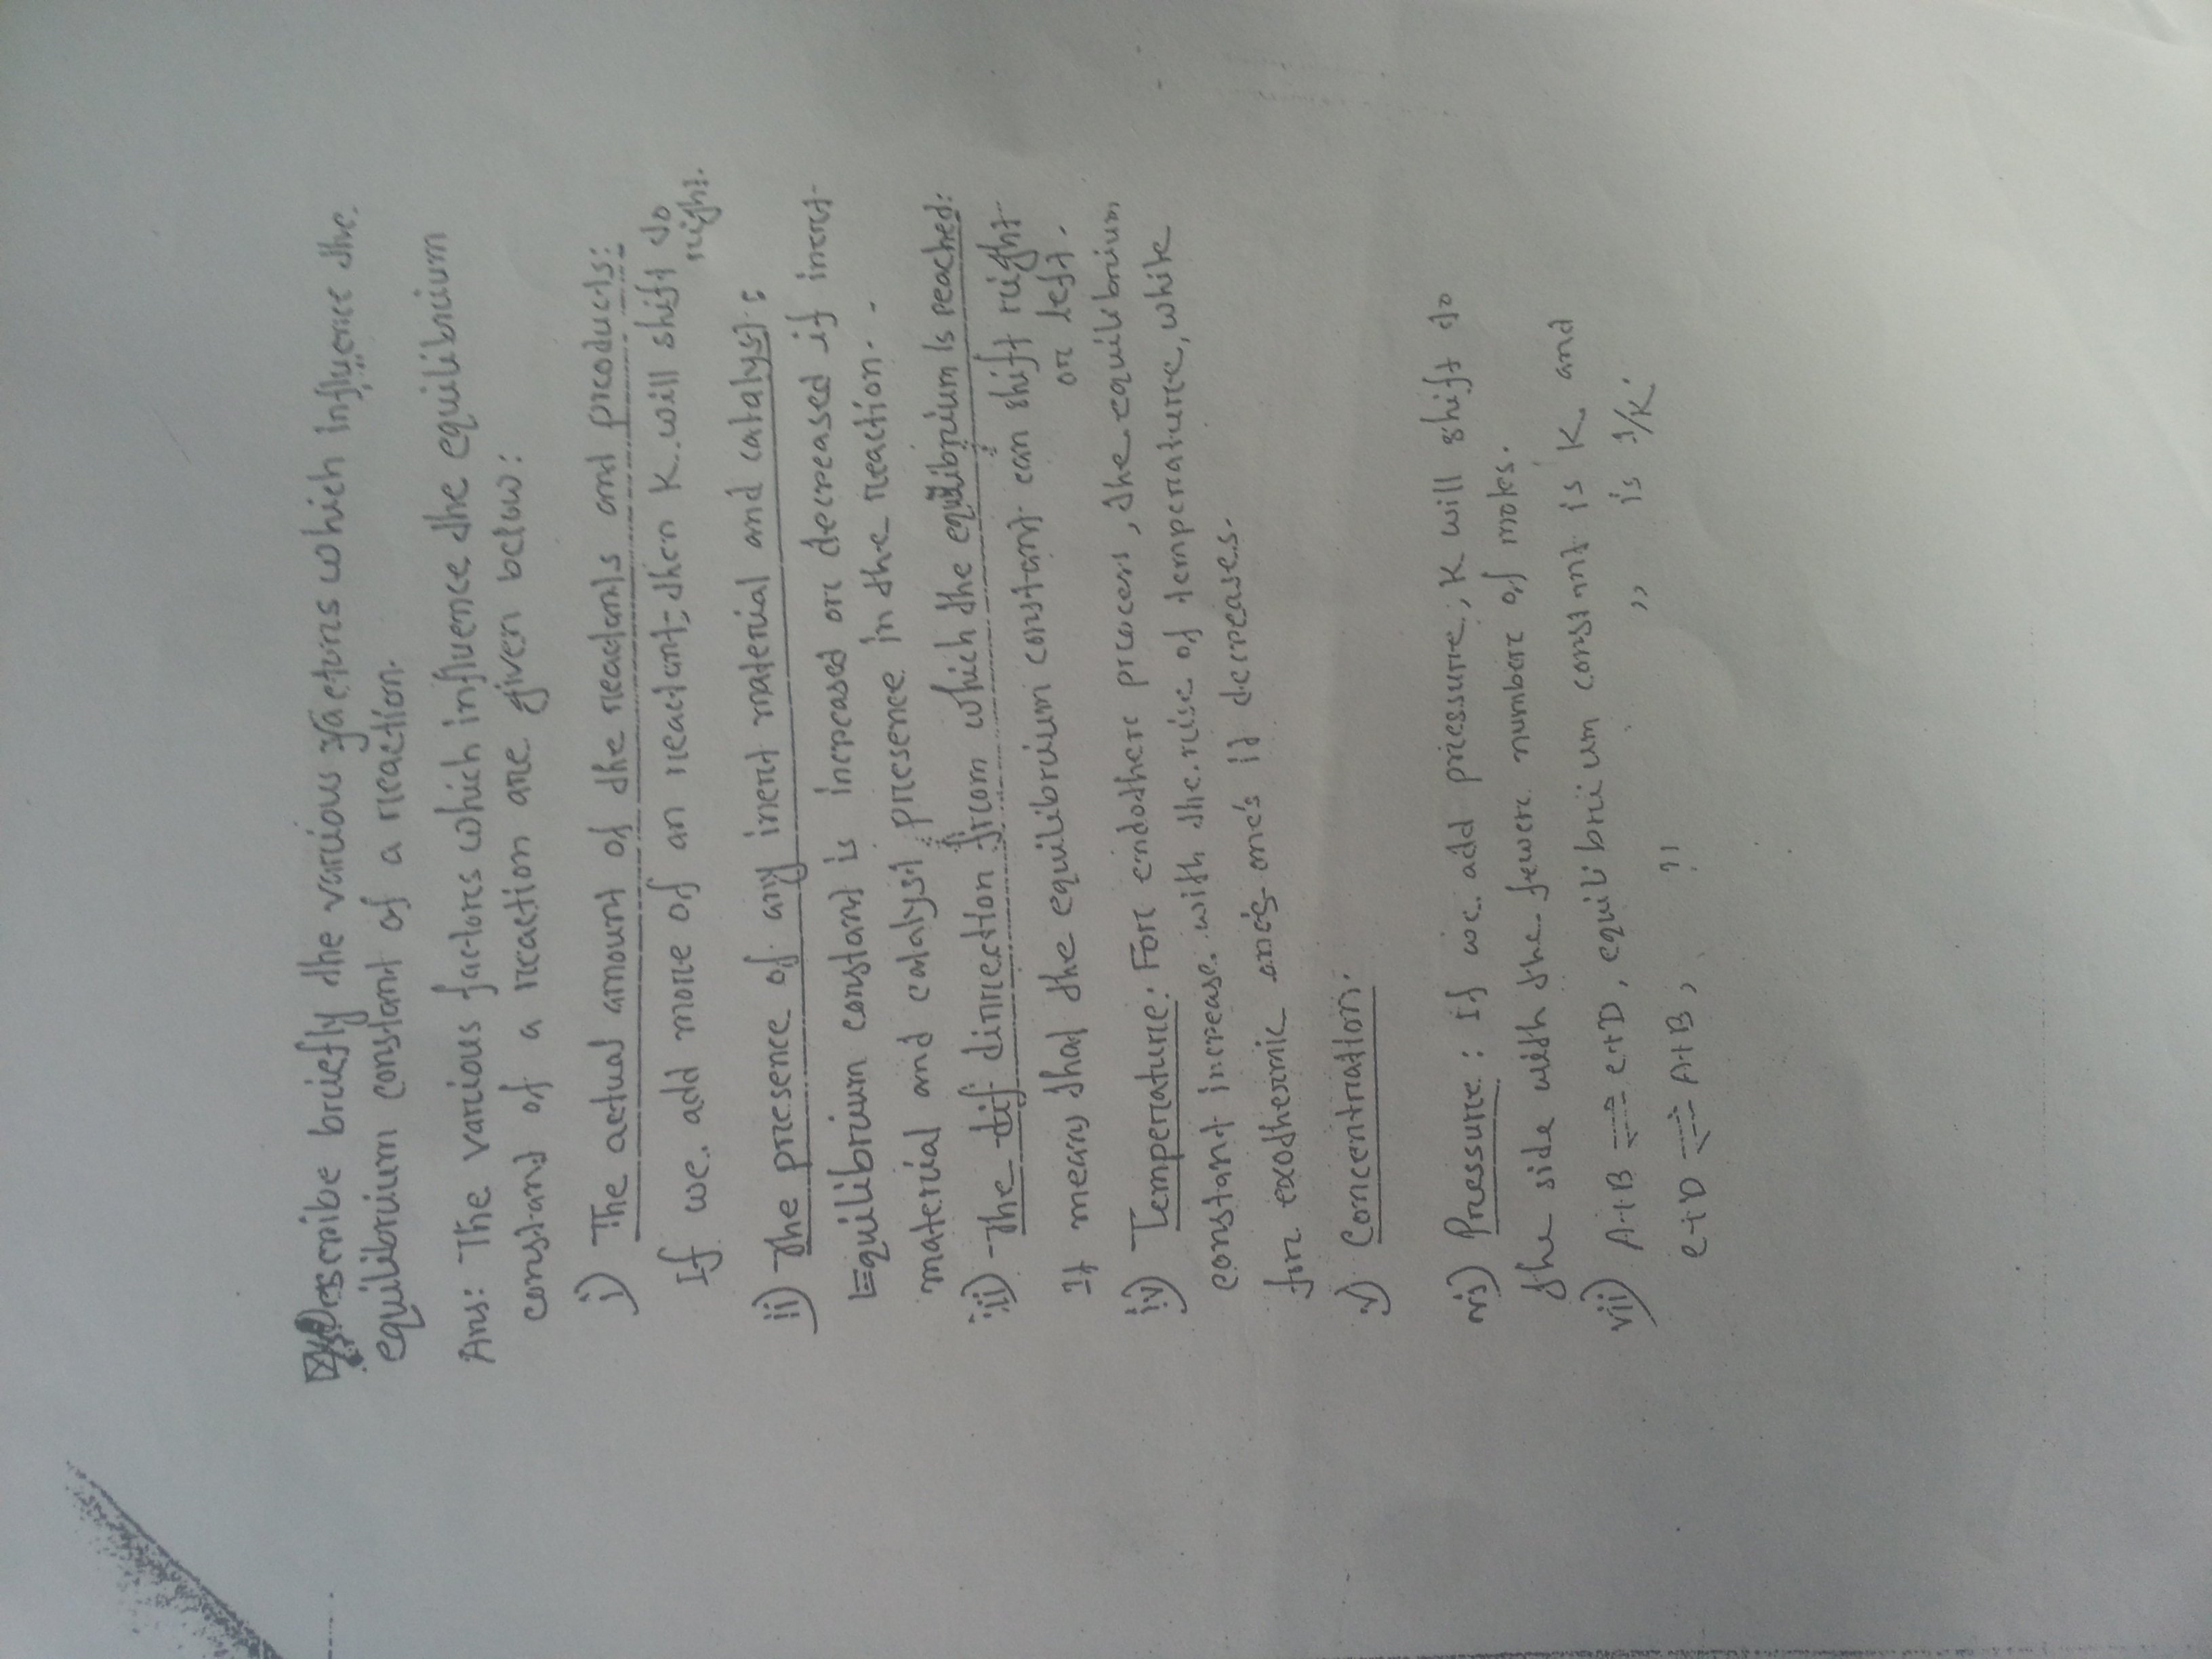 Describe briefly the various factors which influence the
equilibrium constant of a reaction.
Ans: The various factors which influence the equilibrium
constant of a reaction are given below:
i) The actual amount of the reactants and products:
If we add more of an reactant, then K will shift to
right.
ii) The presence of any inert material and catalyst:
Equilibrium constant is increased or decreased if inert
material and catalyst presence in the reaction.
iii) The dif dirrection from which the equilibrium is reached:
It means that the equilibrium constant can shift right
or left.
iv) Temperature: For endother process, the equilibrium
constant increase with the rise of temperature, while
for exothermic one's one's it decreases.
v) Concentration.
vi) Pressure: If we add pressure, K will shift to
the side with the fewer number of moles.
vii) A+B ⇌ C+D, equilibrium constant is K and
C+D ⇌ A+B, " " is 1/K.